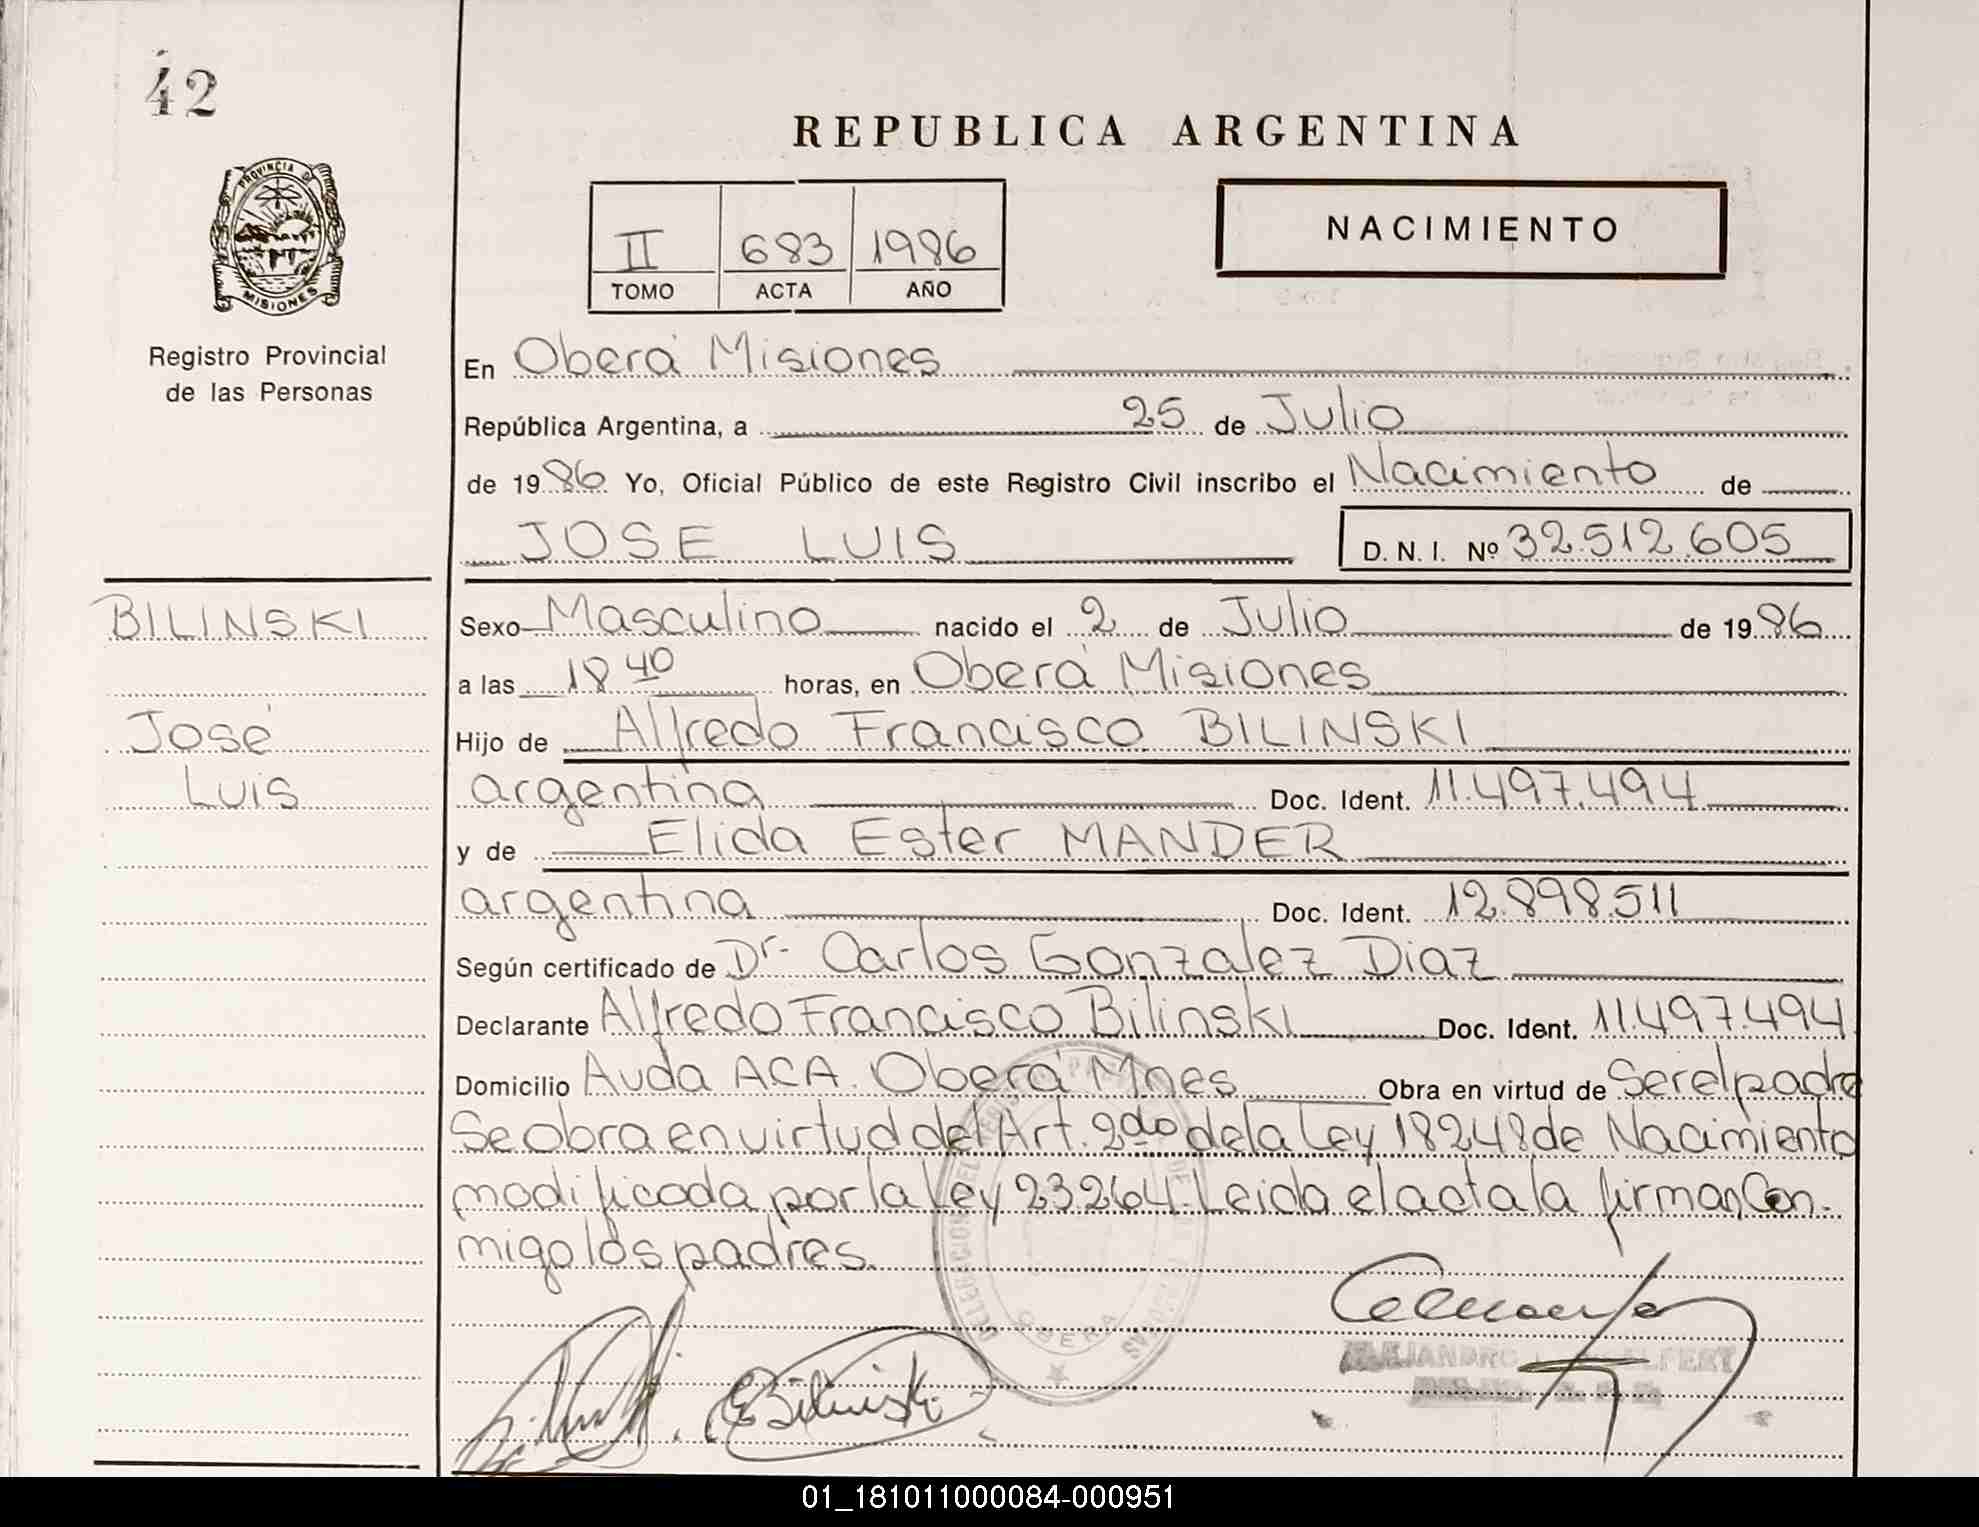 42
REPUBLICA ARGENTINA
PROVINCIA DE
MISIONES
II 683 1986
TOMO ACTA AÑO
NACIMIENTO
Registro Provincial
de las Personas
En Oberá Misiones
República Argentina, a 25 de Julio
de 1986 Yo, Oficial Público de este Registro Civil inscribo el Nacimiento de
JOSE LUIS D. N. I. Nº 32.512.605
BILINSKI
José
Luis
Sexo Masculino nacido el 2 de Julio de 1986
a las 18 40 horas, en Oberá Misiones
Hijo de Alfredo Francisco BILINSKI
argentina Doc. Ident. 11.497.494
y de Elida Ester MANDER
argentina Doc. Ident. 12.898.511
Según certificado de Dr. Carlos Gonzalez Diaz
Declarante Alfredo Francisco Bilinski Doc. Ident. 11.497.494
Domicilio Avda ACA. Oberá Mnes Obra en virtud de Ser el padre
Se obra en virtud del Art. 2do de la Ley 18248 de Nacimiento
modificada por la Ley 23.264. Leida el acta la firman Con-
migo los padres.
OBERA
ALEJANDRO
01_181011000084-000951